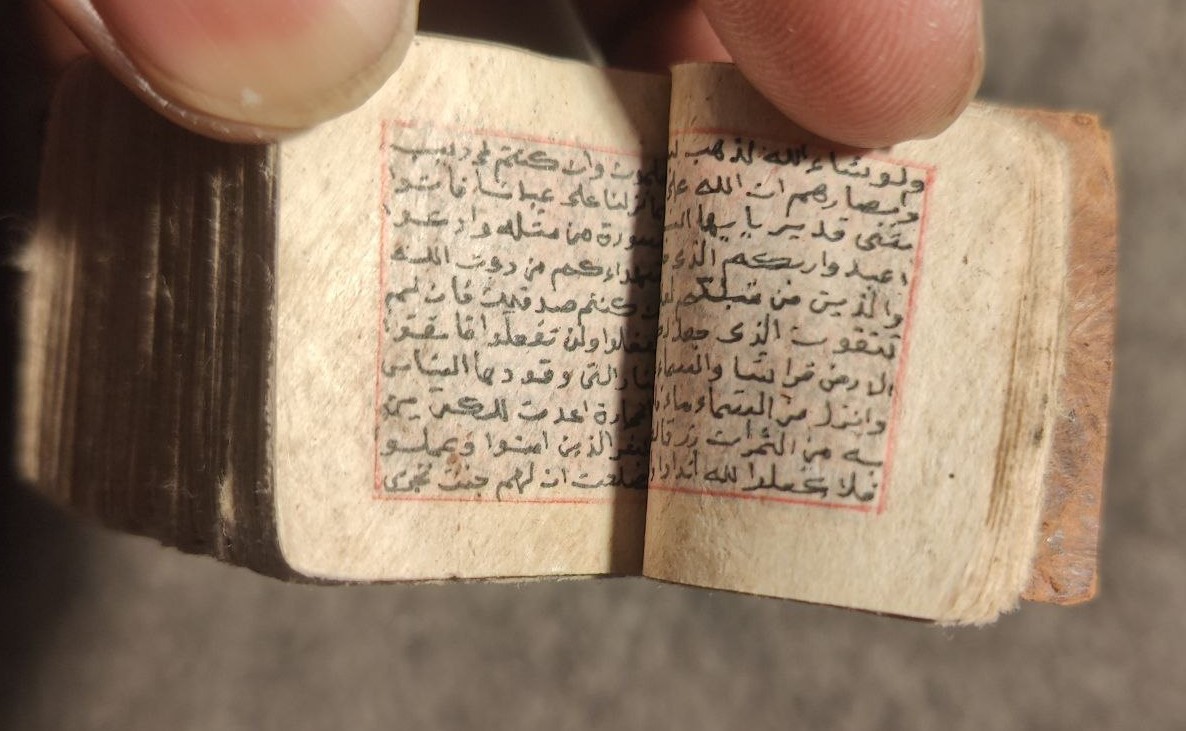 ولو شاء الله لذهب
وبصارهم ان الله على
قدير يا يها
اعبدوا ربكم الذى
والذين من قبلكم
تتقون الذى جعل
الارض فراشا والسماء
وانزل من السماء ماء
به من الثمرات رزقا
فلا تجعلوا لله اندادا
وان كنتم فى ريب
نزلنا على عبدنا فاتوا
بسورة من مثله وادعوا
شهداءكم من دون الله
كنتم صدقين فان لم
تفعلوا ولن تفعلوا فاتقوا
النار التى وقودها الناس
اعدت للكفرين
الذين امنوا وعملوا
الصلحت ان لهم جنت تجرى